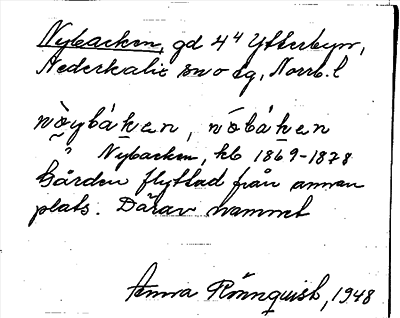 Nybacken, gd 4⁴ Ytterbyn,
Nederkalix sn o tg, Norrb. l
nòybáken, nóbáken
Nybacken, kb 1869-1878
Gården flyttad från annan
plats. Därav namnet
Anna Rönnquist, 1948